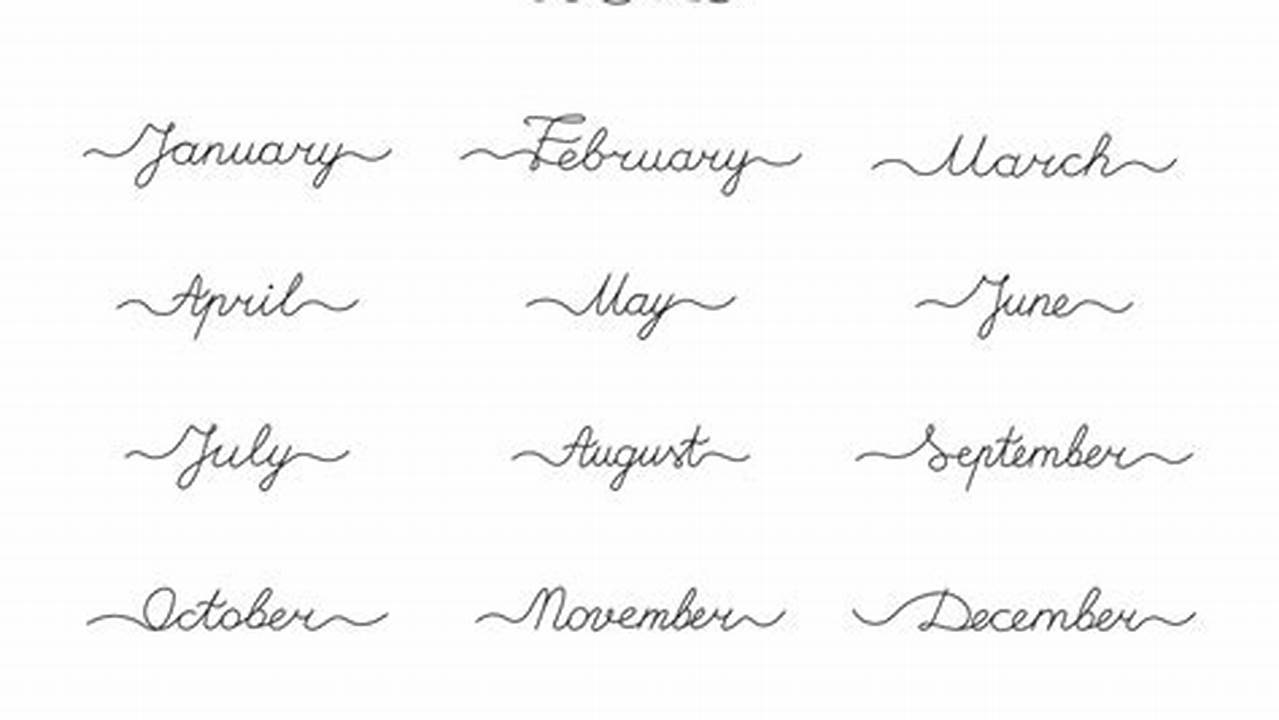 January February March
April May June
July August September
October November December